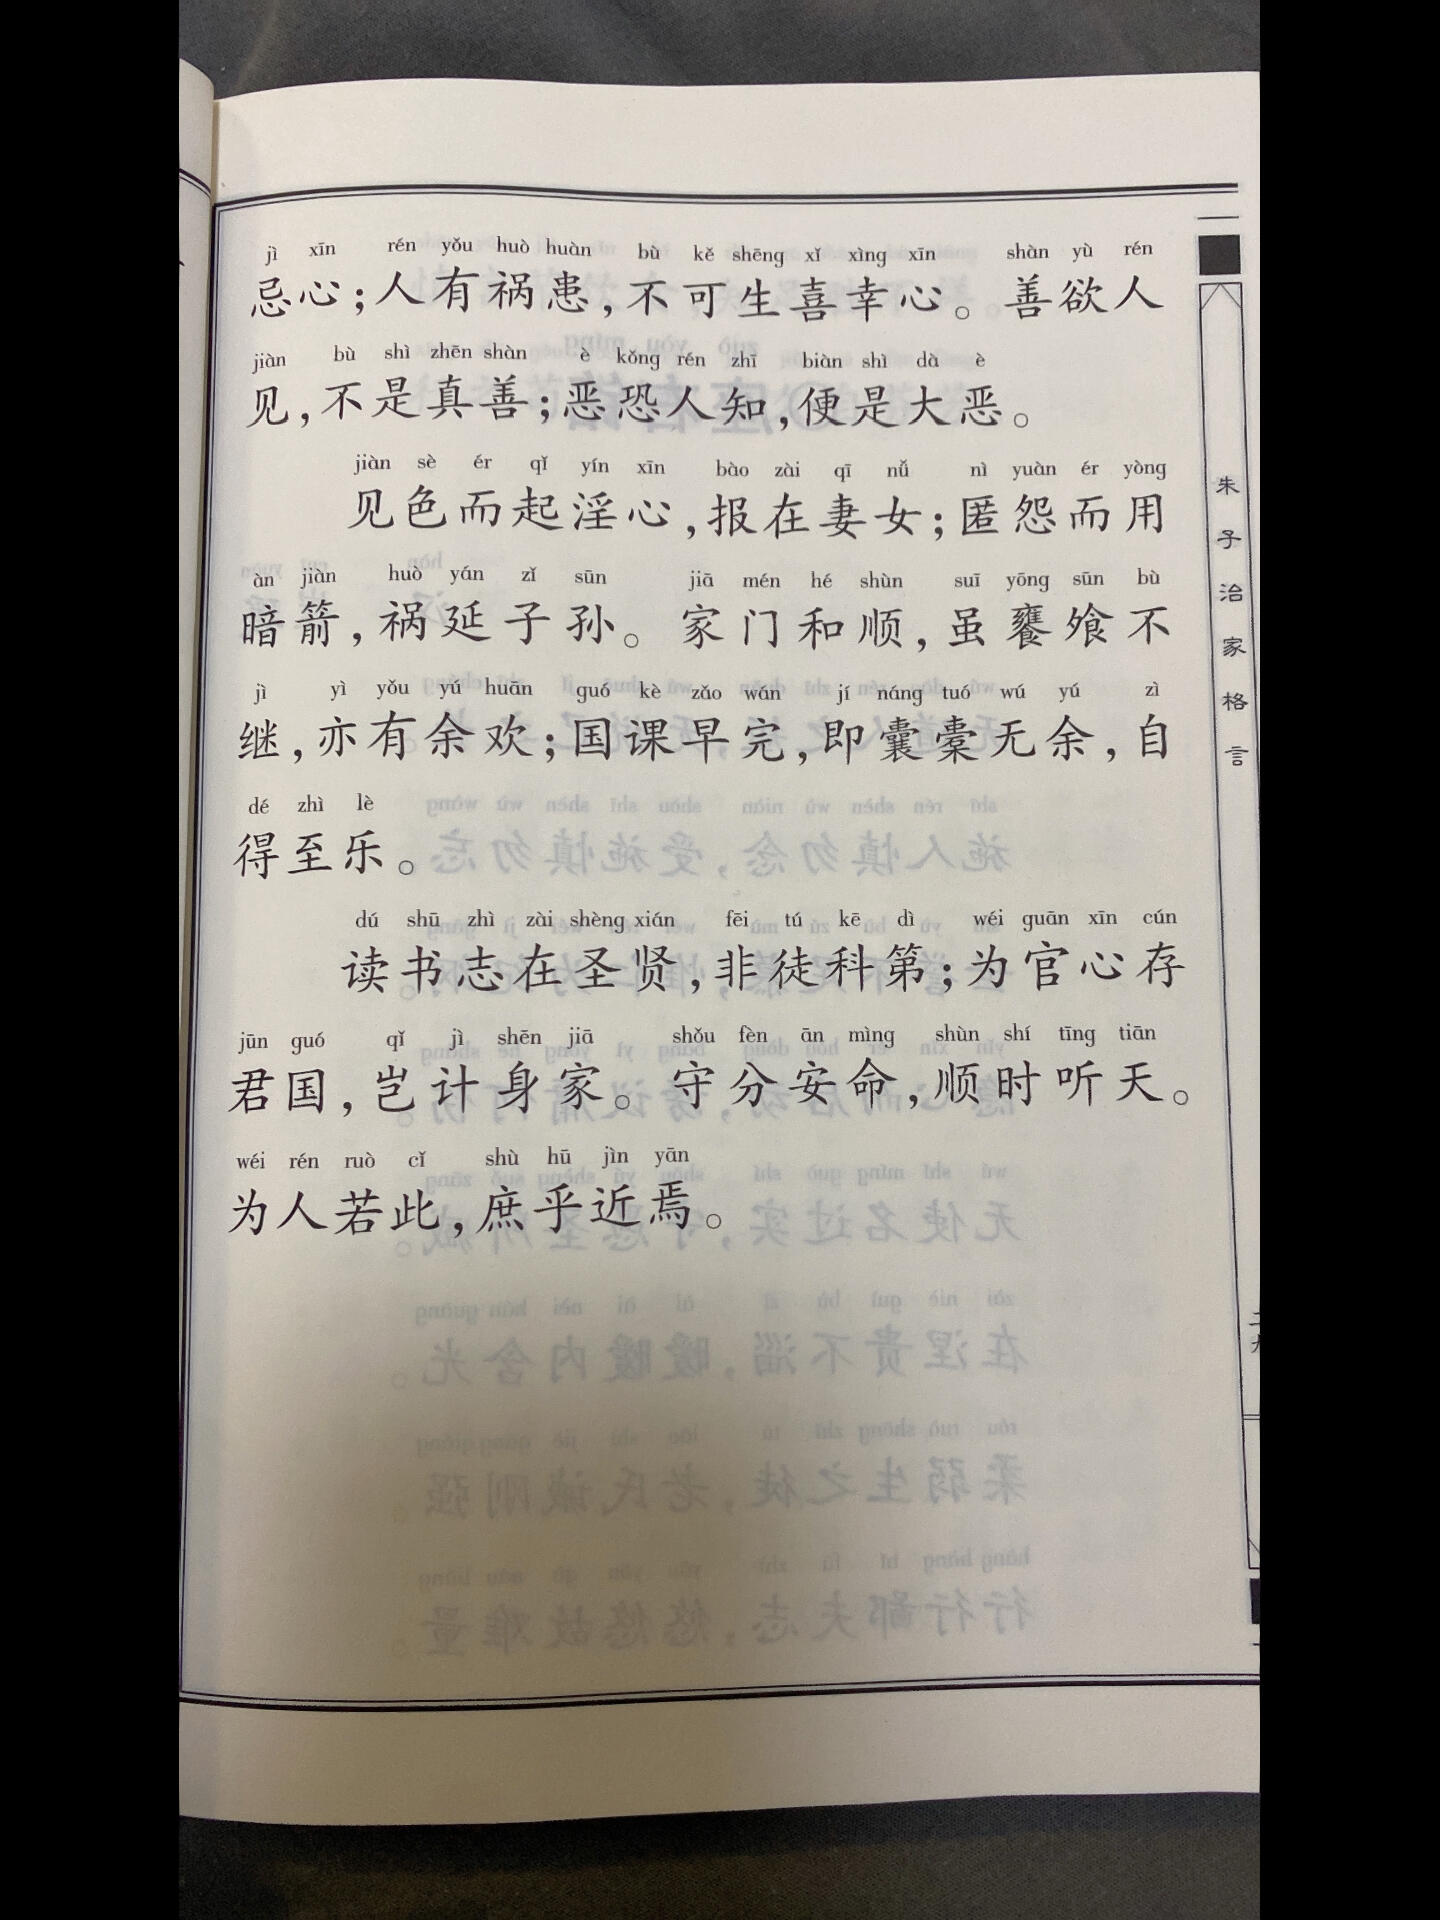 jì xīn rén yǒu huò huàn bù kě shēng xǐ xìng xīn shàn yù rén
忌心；人有祸患，不可生喜幸心。善欲人
jiàn bù shì zhēn shàn è kǒng rén zhī biàn shì dà è
见，不是真善；恶恐人知，便是大恶。
jiàn sè ér qǐ yín xīn bào zài qī nǚ nì yuàn ér yòng
见色而起淫心，报在妻女；匿怨而用
àn jiàn huò yán zǐ sūn jiā mén hé shùn suī yōng sūn bù
暗箭，祸延子孙。家门和顺，虽饔飧不
jì yì yǒu yú huān guó kè zǎo wán jí náng tuó wú yú zì
继，亦有余欢；国课早完，即囊橐无余，自
dé zhì lè
得至乐。
dú shū zhì zài shèng xián fēi tú kē dì wéi guān xīn cún
读书志在圣贤，非徒科第；为官心存
jūn guó qǐ jì shēn jiā shǒu fèn ān mìng shùn shí tīng tiān
君国，岂计身家。守分安命，顺时听天。
wéi rén ruò cǐ shù hū jìn yān
为人若此，庶乎近焉。
朱子治家格言